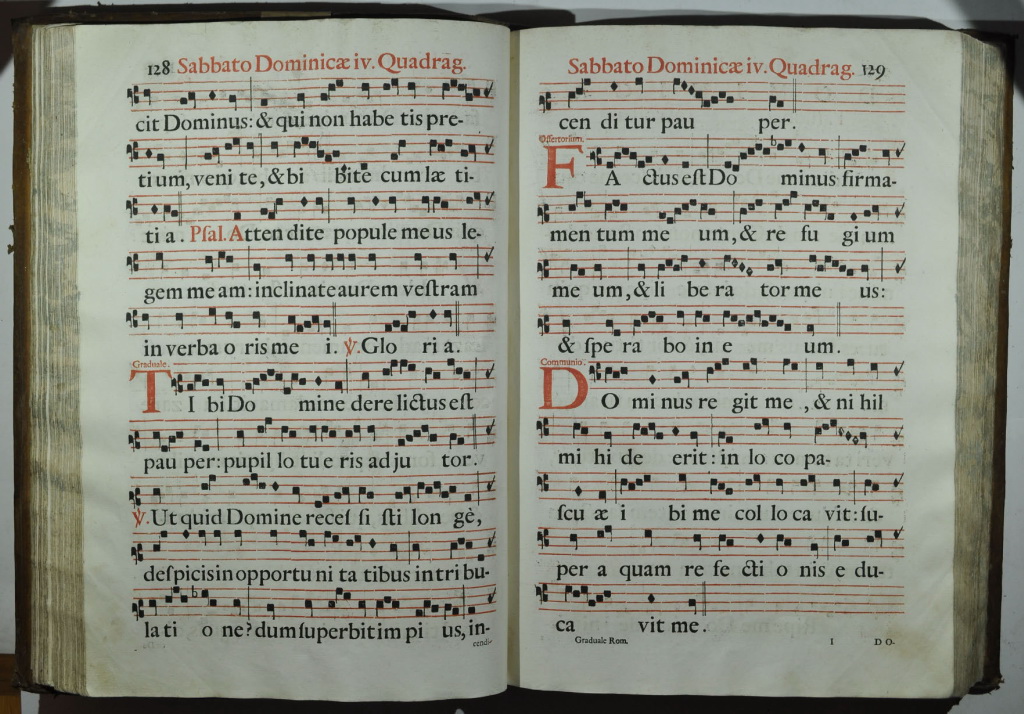 128 Sabbato Dominicæ iv. Quadrag.
cit Dominus: & qui non habe tis pre-
ti um, veni te, & bi bite cum læ ti-
ti a. Pſal. Atten dite popule me us le-
gem me am: inclinate aurem veſtram
in verba o ris me i. ℣. Glo ri a.
Graduale.
TI bi Do mine dere lictus eſt
pau per: pupil lo tu e ris ad ju tor.
℣. Ut quid Domine receſ ſi ſti lon gè,
deſpicis in opportu ni ta tibus in tri bu-
la ti o ne? dum ſuperbit im pi us, in-
cendi-
Sabbato Dominicæ iv. Quadrag. 129
cen di tur pau per.
Offertorium.
FA ctus eſt Do minus firma-
men tum me um, & re fu gi um
me um, & li be ra tor me us:
& ſpe ra bo in e um.
Communio.
DO mi nus re git me, & ni hil
mi hi de erit: in lo co pa-
ſcu æ i bi me col lo ca vit: ſu-
per a quam re fe cti o nis e du-
ca vit me.
Graduale Rom. I DO-